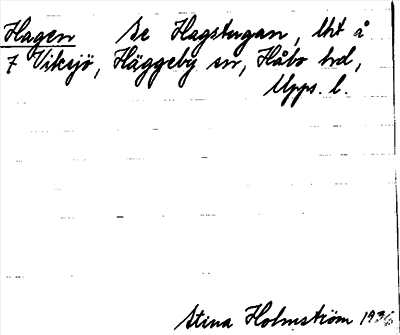 Hagen Se Hagstugan, lht å
7 Viksjö, Häggeby sn, Håbo hd,
Upps. l.
Stina Holmström 1936